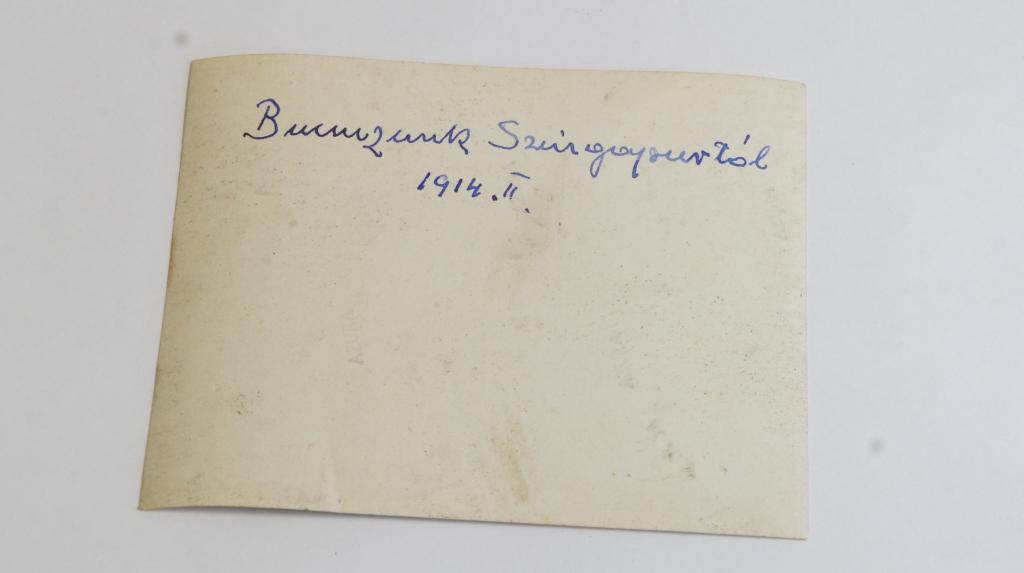 Bucsuzunk Szingapurtól
1914.II.